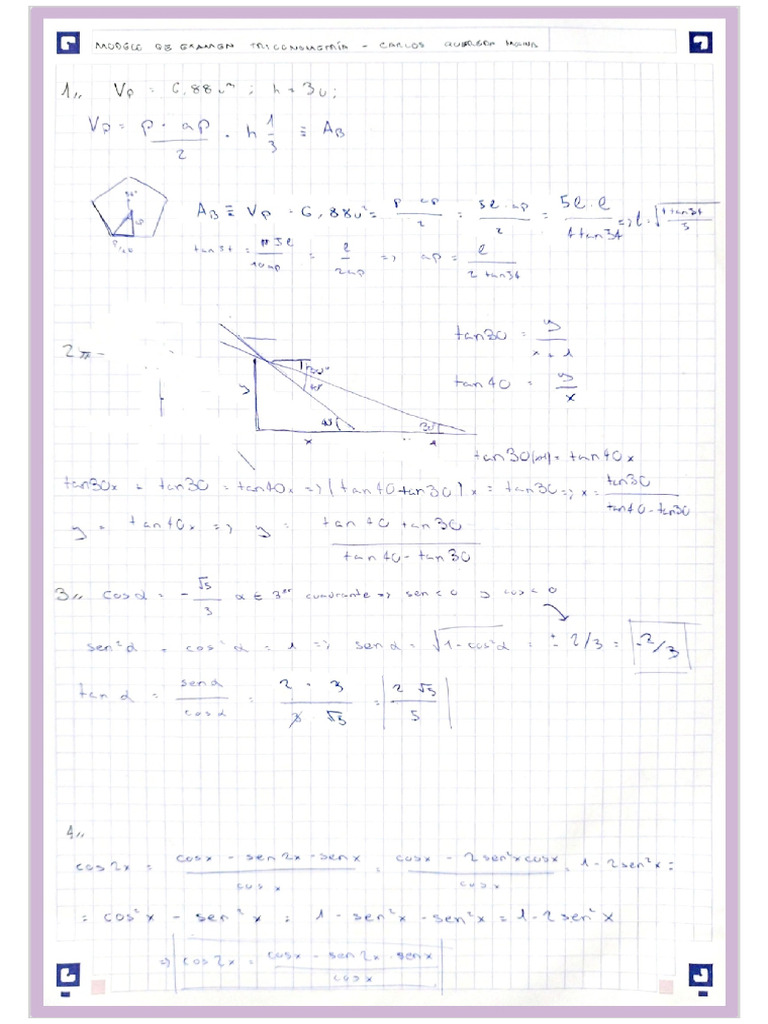 MODELO DE EXAMEN TRIGONOMETRÍA - CARLOS
1,, Vp = 6,88u³ ; h = 3u ;
Vp = p · ap / 2 · h 1/3 ≡ AB
AB ≡ Vp = 6,88u² = p · ap / 2 = 5l · ap / 2 = 5l · l / 4 tan 36 => l = √(4 tan 36 / 5)
tan 36 = 5l / 10 ap = l / 2ap => ap = l / 2 tan 36
2
tan 30 = y / x + 1
tan 40 = y / x
y
30°
40°
40
30
x
1
tan 30 (x+1) = tan 40 x
tan 30x + tan 30 = tan 40x => (tan 40 - tan 30) x = tan 30 => x = tan 30 / tan 40 - tan 30
y = tan 40x => y = tan 40 tan 30 / tan 40 - tan 30
3,, cos α = - √5 / 3 α ∈ 3er cuadrante => sen < 0 y cos < 0
sen²α + cos²α = 1 => sen α = √1 - cos²α = ± 2/3 = -2/3
tan α = sen α / cos α = 2 · 3 / 3 · √5 = 2 √5 / 5
4,,
cos 2x = cos x - sen 2x · sen x / cos x = cos x - 2 sen²x cos x / cos x = 1 - 2 sen²x =
= cos²x - sen²x = 1 - sen²x - sen²x = 1 - 2 sen²x
=> cos 2x = cos x - sen 2x · sen x / cos x